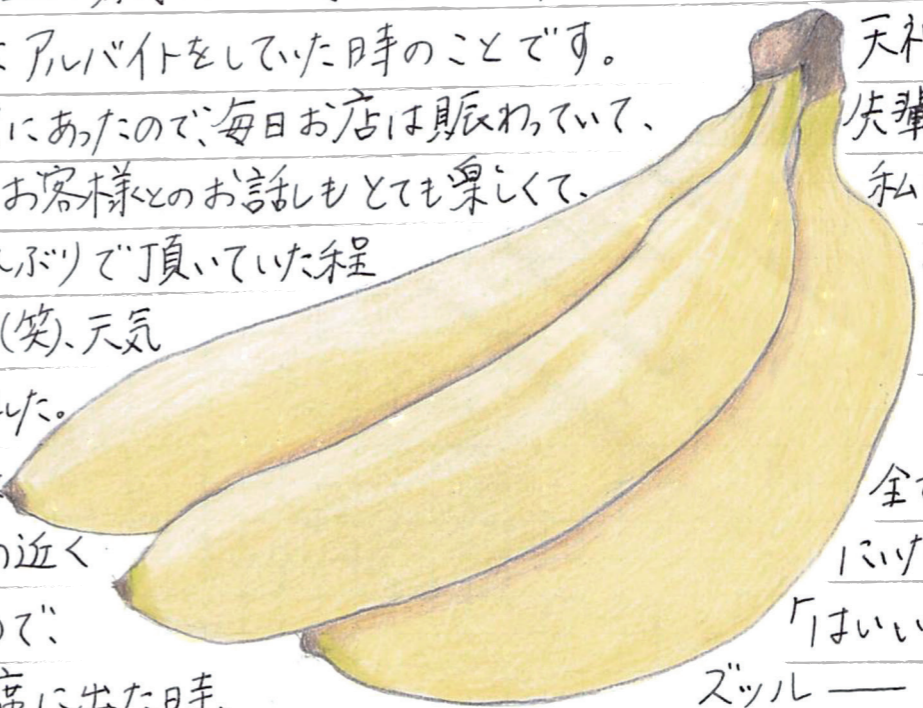 アルバイトをしていた時のことです。
にあったので、毎日お店は賑わっていて、
お客様とのお話しもとても楽しくて、
ぶりで頂いていた程
(笑)、天気
した。
の近く
ので、
席に出た時、
天神
先輩
私
全て
にいた
「はいい
ズッルー